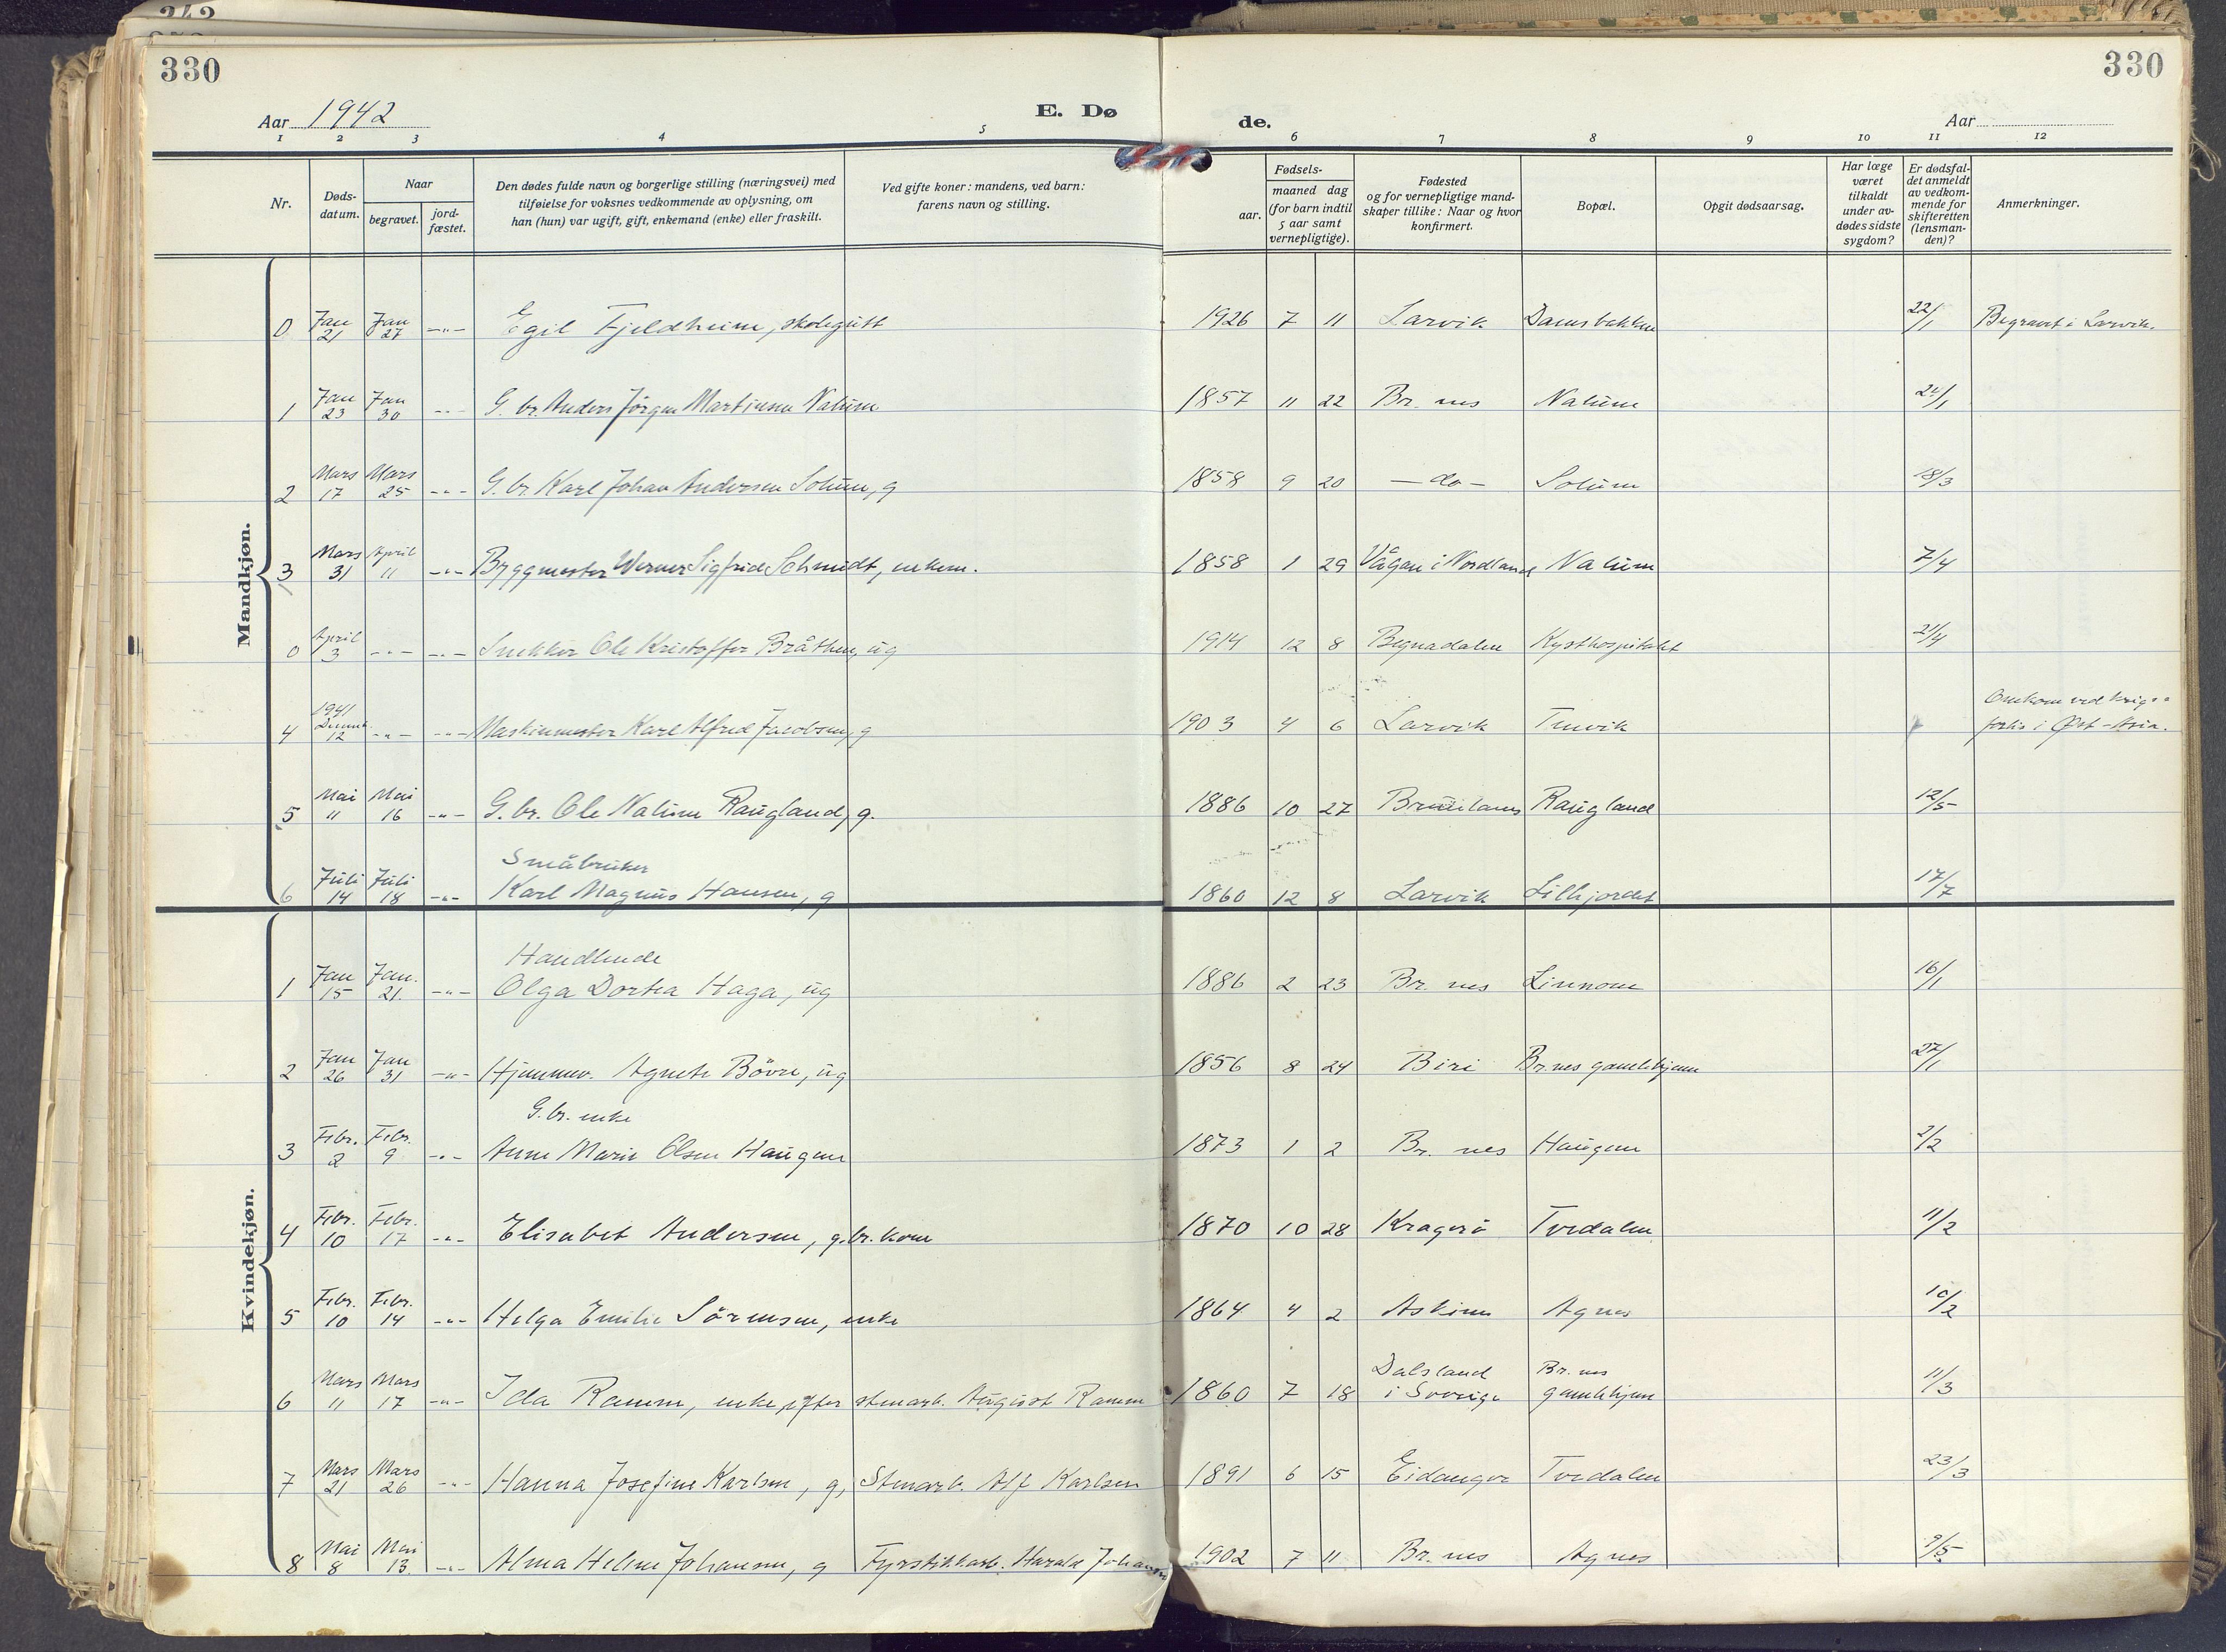 330
330
Aar 1942
E. Dø
de.
Aar
1 2 3 4 5 6 7 8 9 10 11 12
Nr.
Døds-
datum.
Naar
begravet.
jord-
fæstet.
Den dødes fulde navn og borgerlige stilling (næringsvei) med
tilføielse for voksnes vedkommende av oplysning, om
han (hun) var ugift, gift, enkemand (enke) eller fraskilt.
Ved gifte koner: mandens, ved barn:
farens navn og stilling.
Fødsels-
aar.
maaned dag
(for barn indtil
5 aar samt
vernepligtige).
Fødested
og for vernepligtige mand-
skaper tillike: Naar og hvor
konfirmert.
Bopæl.
Opgit dødsaarsag.
Har læge
været
tilkaldt
under av-
dødes sidste
sygdom?
Er dødsfal-
det anmeldt
av vedkom-
mende for
skifteretten
(lensman-
den)?
Anmerkninger.
Mandkjøn.
0 Jan 21 Jan 27 -"- Egil Fjeldheim, skolegutt 1926 7 11 Larvik Damsbakken 22/1 Begravet i Larvik.
1 Jan 23 Jan 30 -"- G. br. Anders Jörgen Martinsen Nalum 1857 11 22 Br. nes Nalum 24/1
2 Mars 17 Mars 25 -"- G. br. Karl Johan Andersen Solum, g 1858 9 20 - do - Solum 18/3
3 Mars 31 April 11 -"- Byggmester Werner Sigfried Schmidt, enkem. 1858 1 29 Vågan i Nordland Nalum 7/4
0 April 3 -"- -"- Snekker Ole Kristoffer Bråthen, ug 1914 12 8 Begnadalen Kysthospitalet 21/4
4 1941 Desemb. 12 -"- -"- Maskinmester Karl Alfred Jacobsen, g 1903 4 6 Larvik Tenvik Omkom ved krigs-
forlis i Øst-Asia.
5 Mai 11 Mai 16 -"- G. br. Ole Nalum Raugland, g. 1886 10 27 Brunlanes Raugland 12/5
Småbruker
6 Juli 14 Juli 18 -"- Karl Magnus Hansen, g 1860 12 8 Larvik Lillejordet 17/7
Kvindekjøn.
Handlende
1 Jan 15 Jan. 21. -"- Olga Dortea Haga, ug 1886 2 23 Br. nes Linnom 16/1
2 Jan 26 Jan 31 -"- Hjemmev. Agnete Bövre, ug 1856 8 24 Biri Br.nes gamlehjem 27/1
G. br. enke
3 Febr. 2 Febr. 9 -"- Anne Marie Olsen Haugene 1873 1 2 Br. nes Haugene 2/2
4 Febr. 10 Febr. 17 -"- Elisabet Andersen, g.br. kone 1870 10 28 Kragerö Tvedalen 11/2
5 Febr. 10 Febr. 14 -"- Helga Emilie Sörensen, enke 1864 4 2 Askim Agnes 10/2
6 Mars 11 Mars 17 -"- Ida Ramm, enke efter stenarb. August Ramm 1860 7 18 Dalsland
i Sverige Br. nes
gamlehjem 11/3
7 Mars 21 Mars 26 -"- Hanna Josefine Karlsen, g, Stenarb. Alf Karlsen 1891 6 15 Eidanger Tvedalen 23/3
8 Mai 8 Mai 13 -"- Alma Helene Johansen, g Fyrstikkarb. Harald Johansen 1902 7 11 Br. nes Agnes 9/5